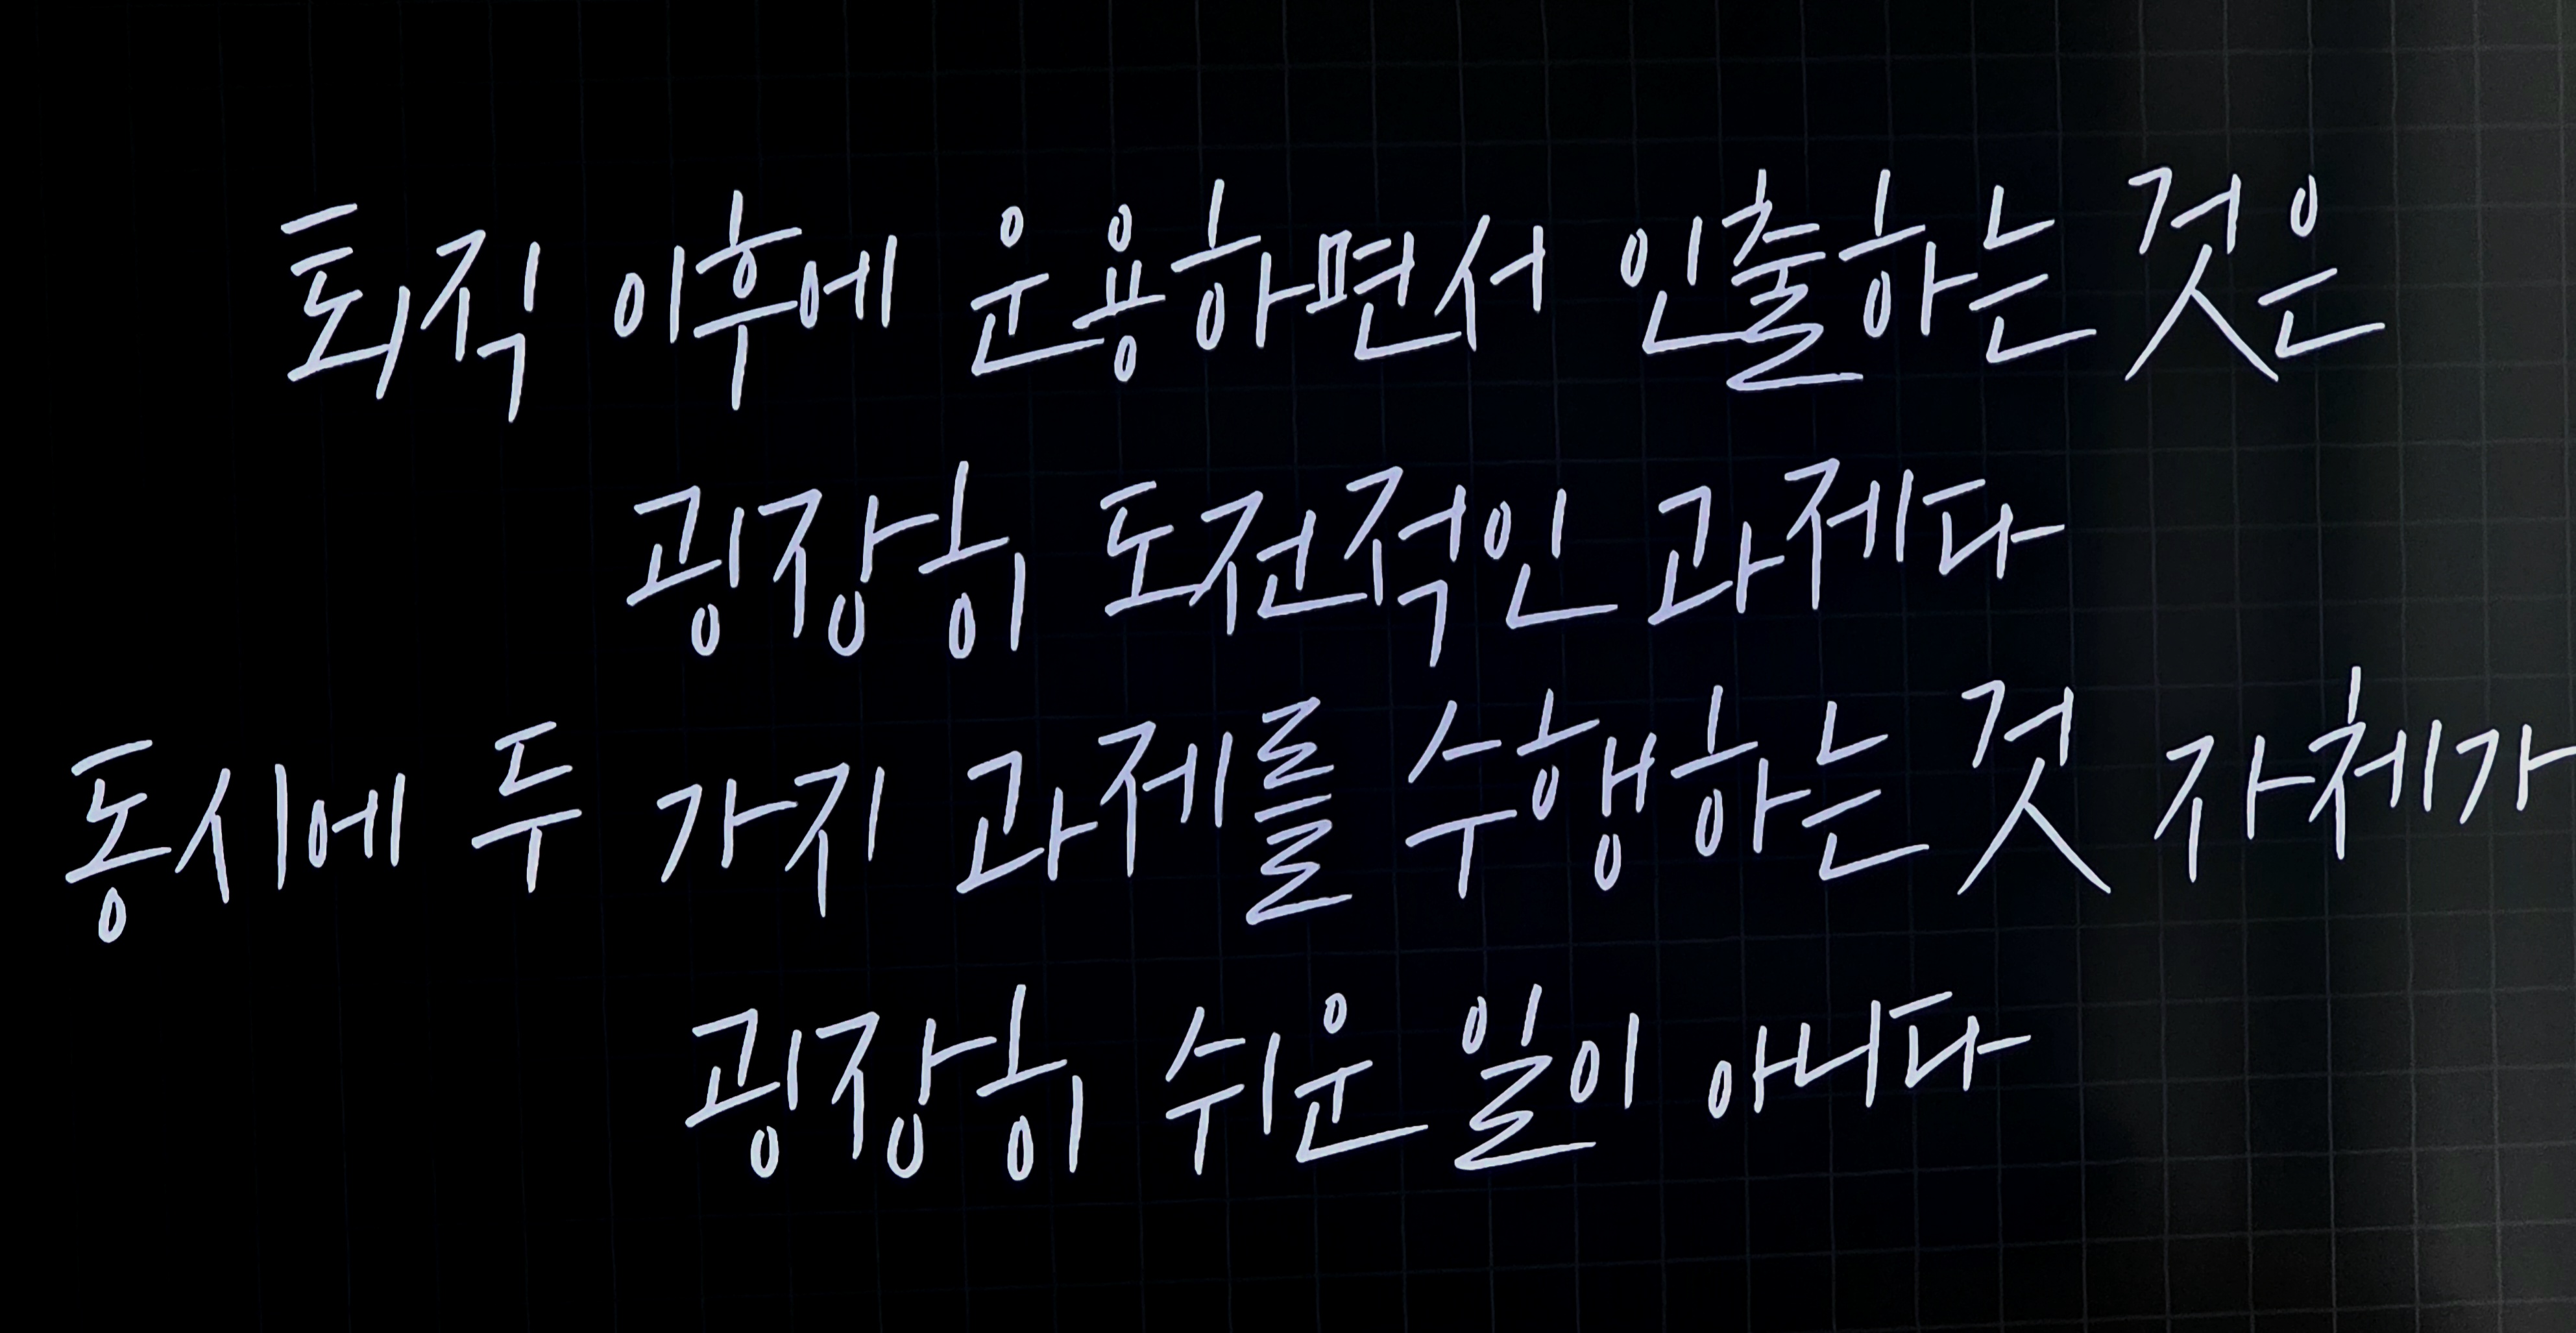 퇴직 이후에 운용하면서 인출하는 것은
굉장히 도전적인 과제다
동시에 두 가지 과제를 수행하는 것 자체가
굉장히 쉬운 일이 아니다